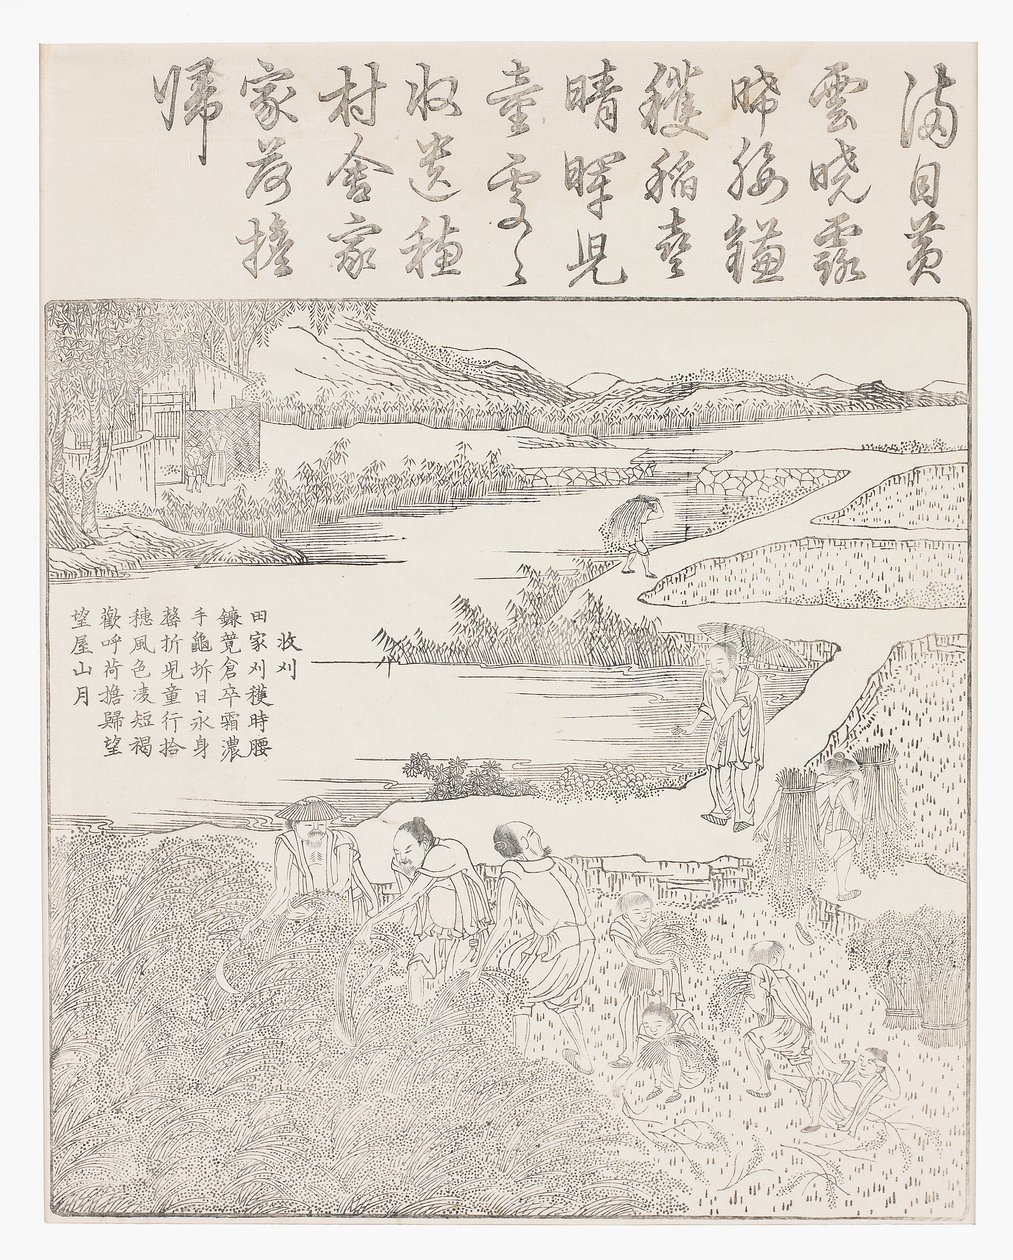 滿目黃
雲曉露
晞腰鎌
穫稻喜
晴暉兒
童處〻
收遺穗
村舍家
家荷擔
歸
收刈
田家刈穫時腰
鎌競倉卒霜濃
手龜坼日永身
罄折兒童行拾
穗風色凌短褐
歡呼荷擔歸望
望屋山月